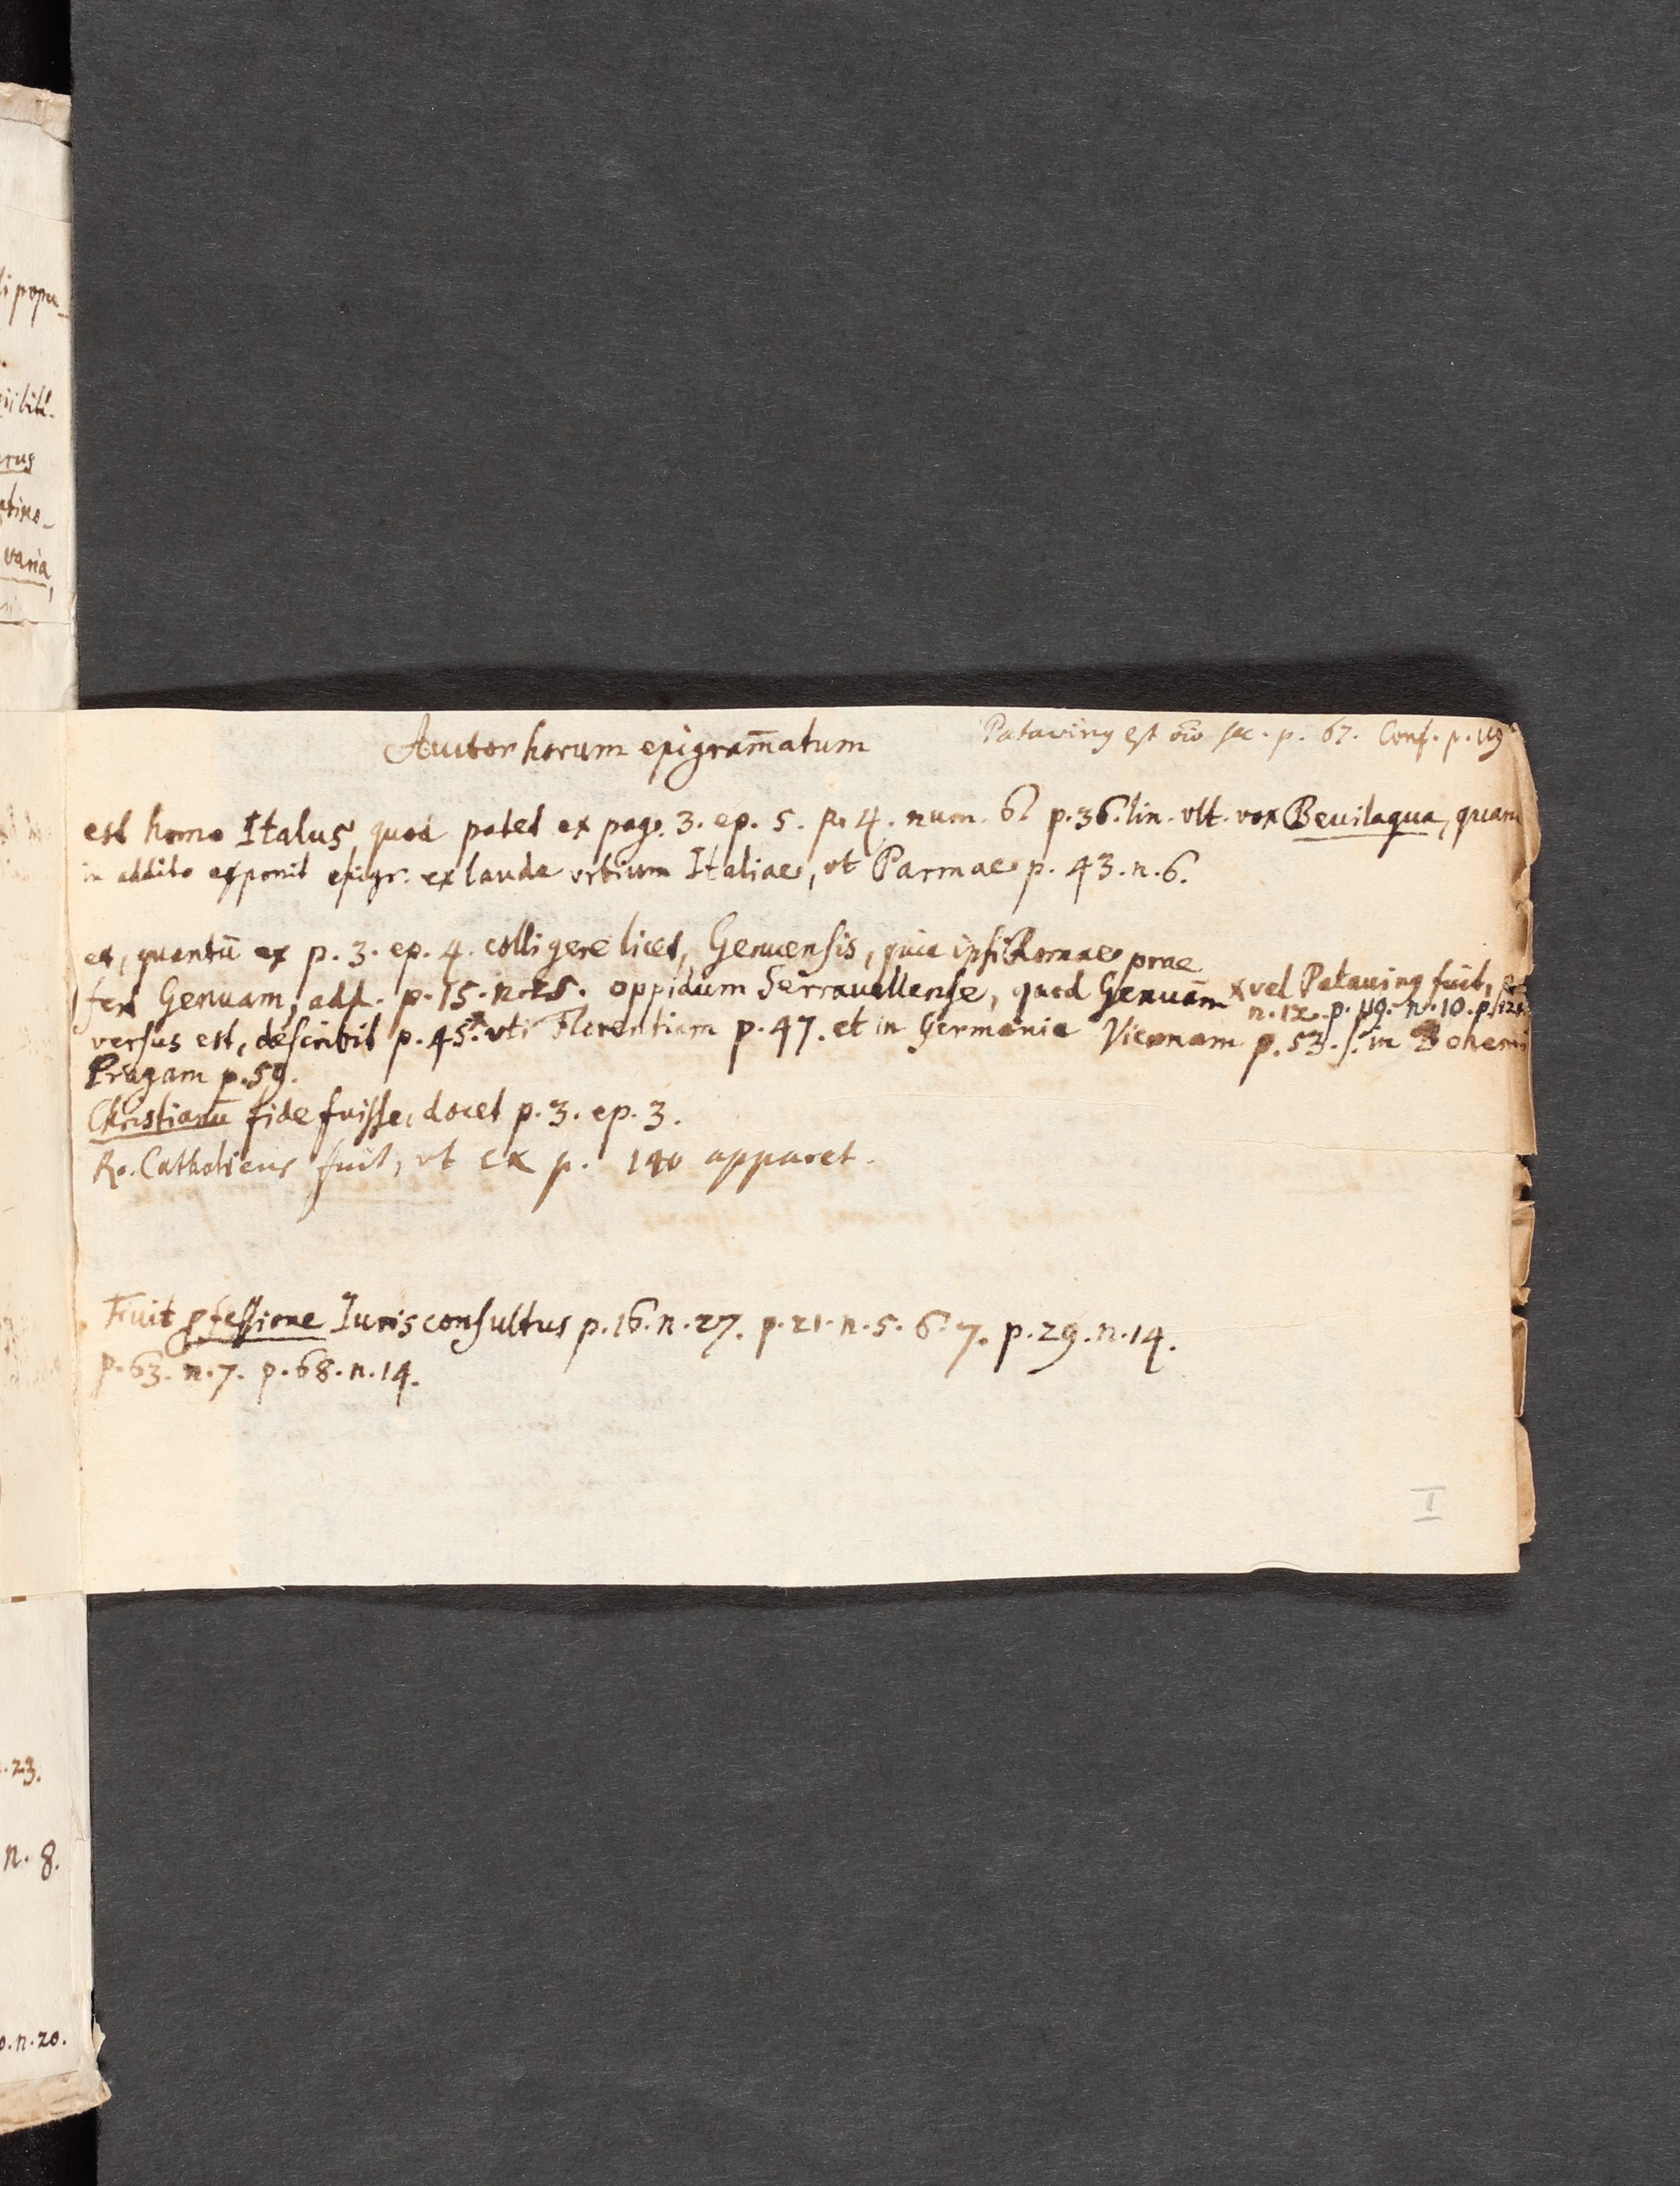 Autor horum epigram̄atum
Patavinꝰ est oīo sec. p. 67. Conf. p. 119
est homo Italus, quod patet ex pag. 3. ep. 5. p. 4. num. 6. p. 36. lin. vlt. vox Bevilaqua, quam
in addito exponit epigr. ex laude vrbium Italiae, vt Parmae p. 43. n. 6.
et, quantū ex p. 3. ep. 4. colligere licet, Genuensis, quia ipsi Romae prae
fert Genuam, add. p. 15. n. 25. oppidum Serravallense, quod Genuam
x vel Patavinꝰ fuit,
n. 12. p. 119. n. 10. p. 121
versus est, describit p. 45. x vti Florentiam p. 47. et in Germania Viennam p. 53. s. in Bohemi
Pragam p. 59.
Christianū fide fuisse, docet p. 3. ep. 3.
Ro. Catholicus fuit, vt ex p. 140 apparet.
Fuit pfessione Iurisconsultus p. 16. n. 27. p. 21. n. 5. 6. 7. p. 29. n. 14.
p. 63. n. 7. p. 68. n. 14.
I
li popu-
arus
atino-
varia,
. 23.
n. 8.
0. n. 20.